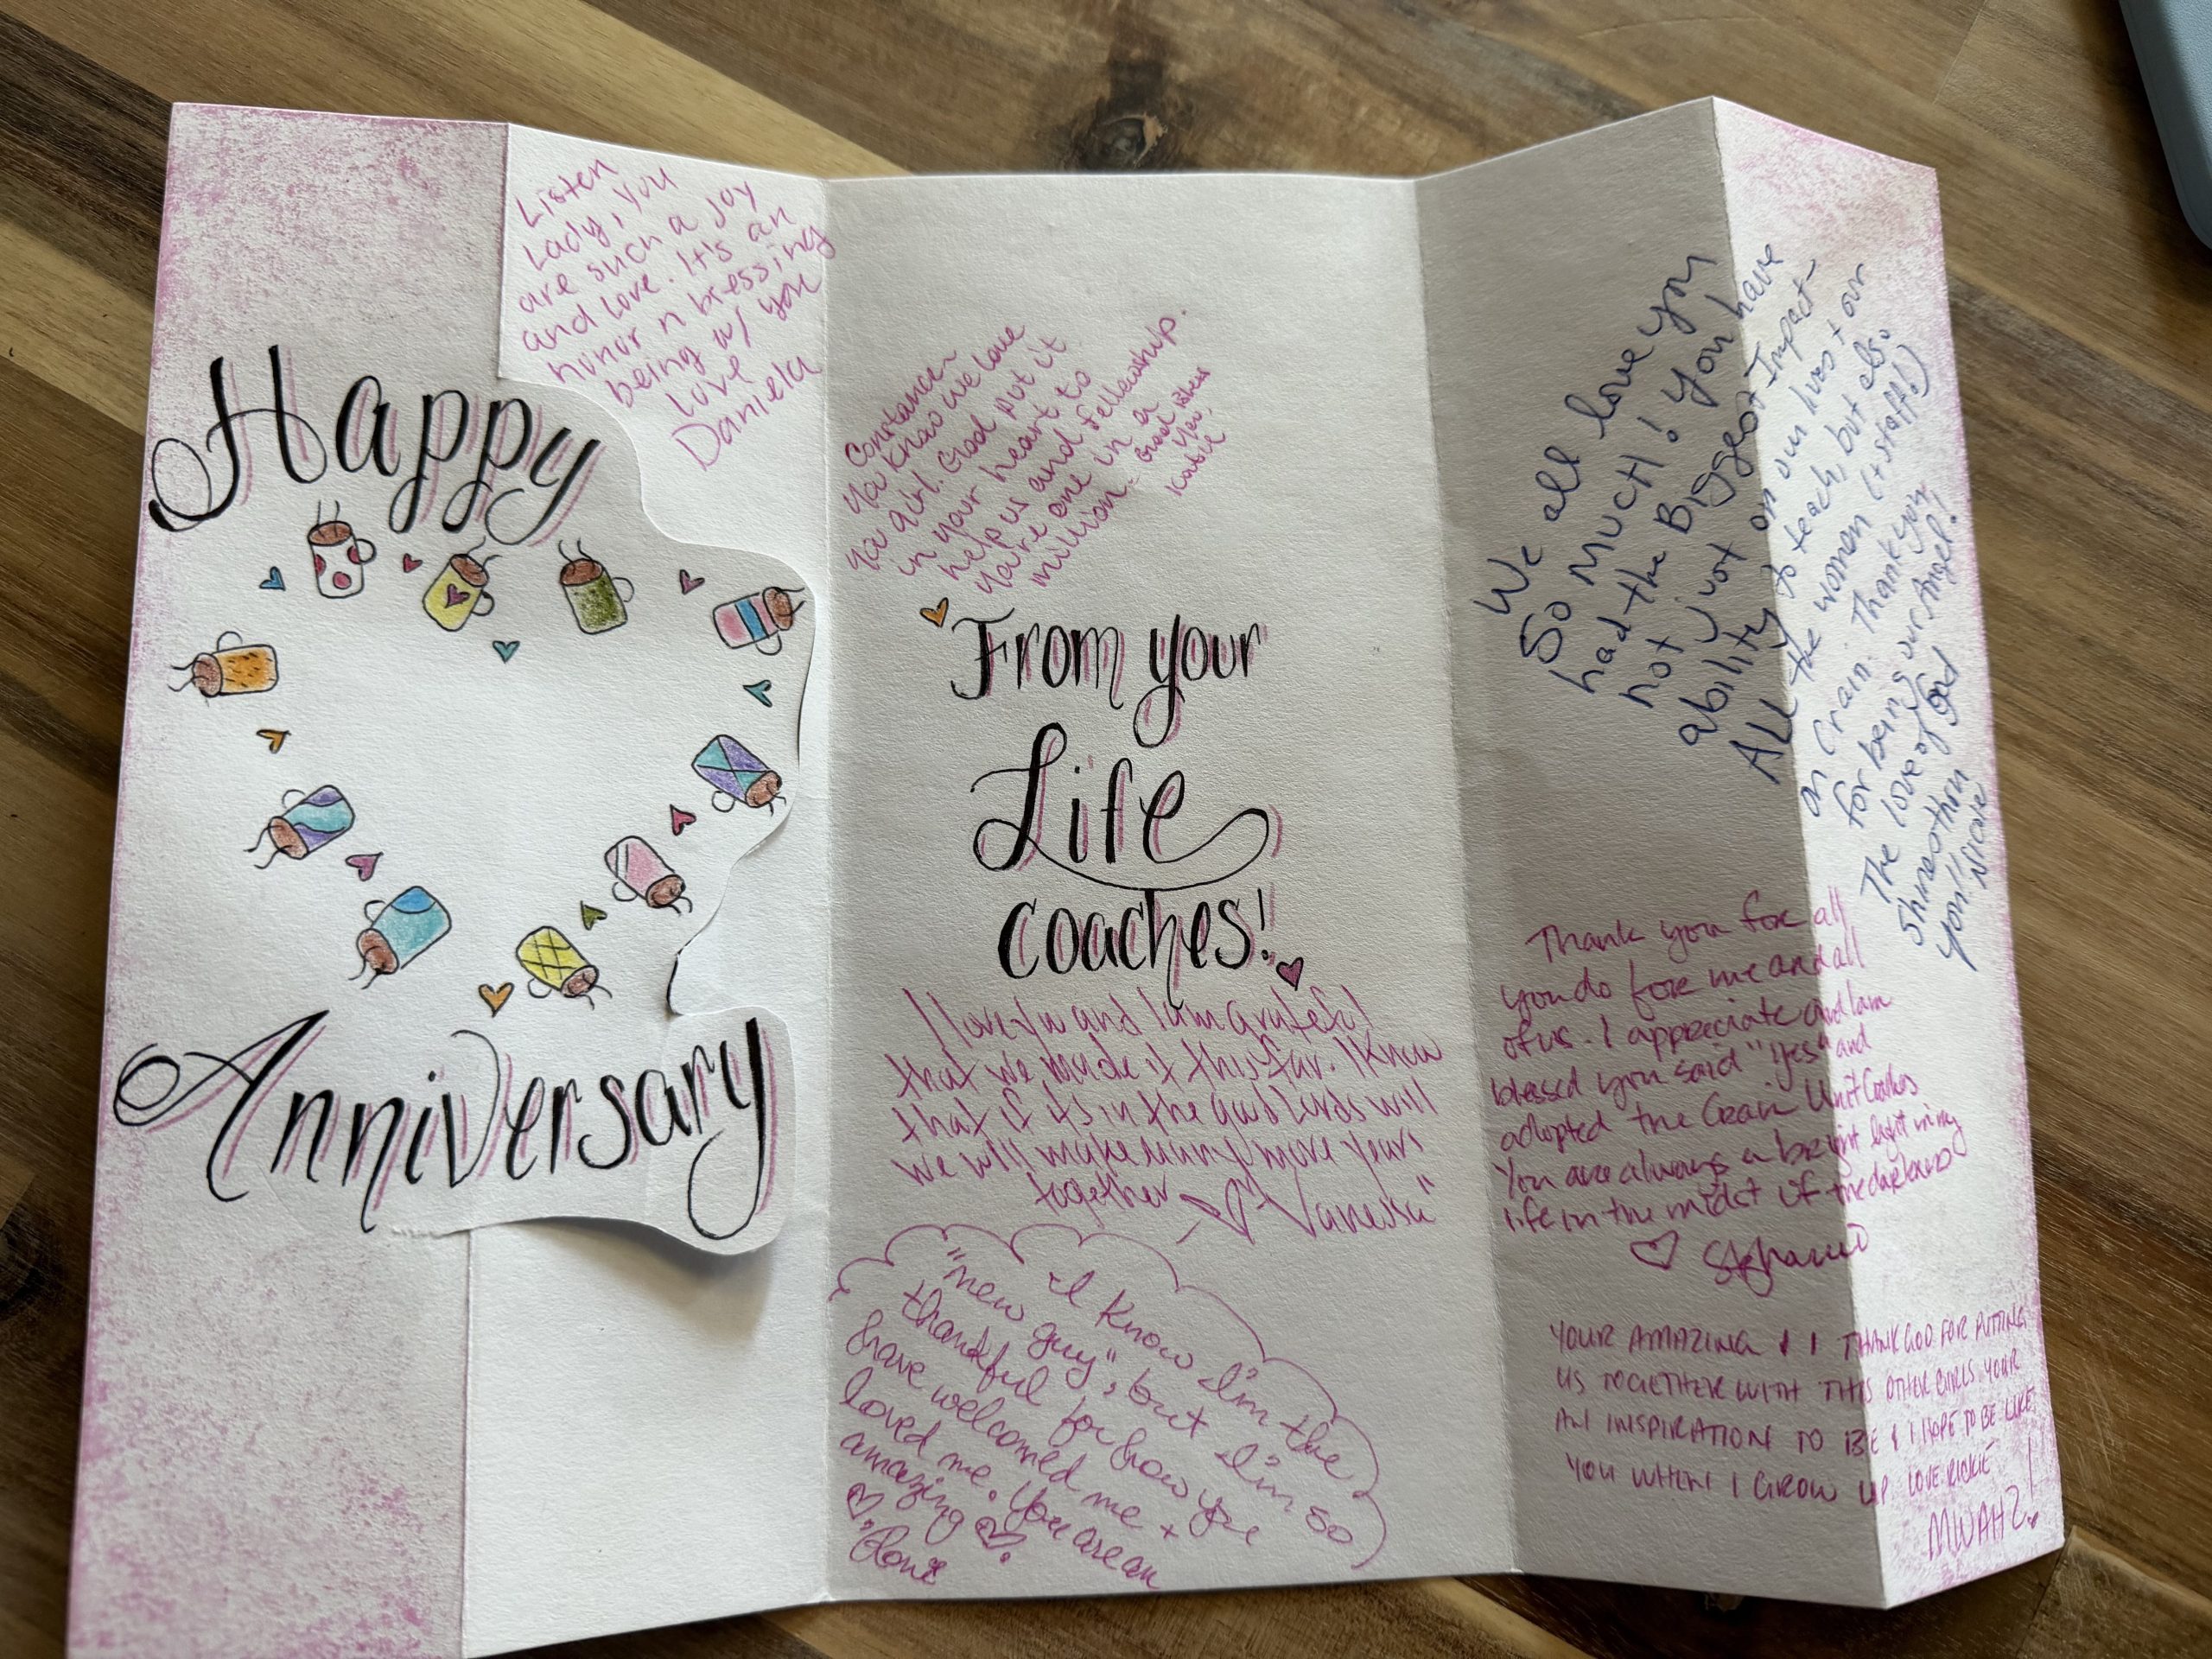 Happy
Anniversary
Listen
Lady, you
are such a joy
and love. It's an
honor n blessing
being w/ you
Love
Daniela
Constance
you know we love
you girl. God put it
in your heart to
help us and fellowship.
You're one in a
million. God bless
you,
From your
Life
coaches!
I love you and I am grateful
that we made it this far. I know
that if its in the good Lords will
we will make many more years
together "Vanessa"
"I know I'm the
"new guy", but I'm so
thankful for how you
have welcomed me +
loved me. You are
amazing
We all love you
So Much! You have
had the Biggest Impact-
not just on our lives + our
ability to teach, but also
All the women (+ staff!)
on Crain. Thank you
for being our Angel!
The love of God
Shines thru
you!! Nicole
Thank you for all
you do for me and all
of us. I appreciate and I am
blessed you said "Yes" and
adopted the Crain Unit Coaches
You are always a bright light in my
life in the midst of the darkness
YOUR AMAZING & I THANK GOD FOR PUTTING
US TOGETHER WITH THIS OTHER GIRLS YOUR
AN INSPIRATION TO BE & I HOPE TO BE LIKE
YOU WHEN I GROW UP LOVE RICKIE
MWAHZ!